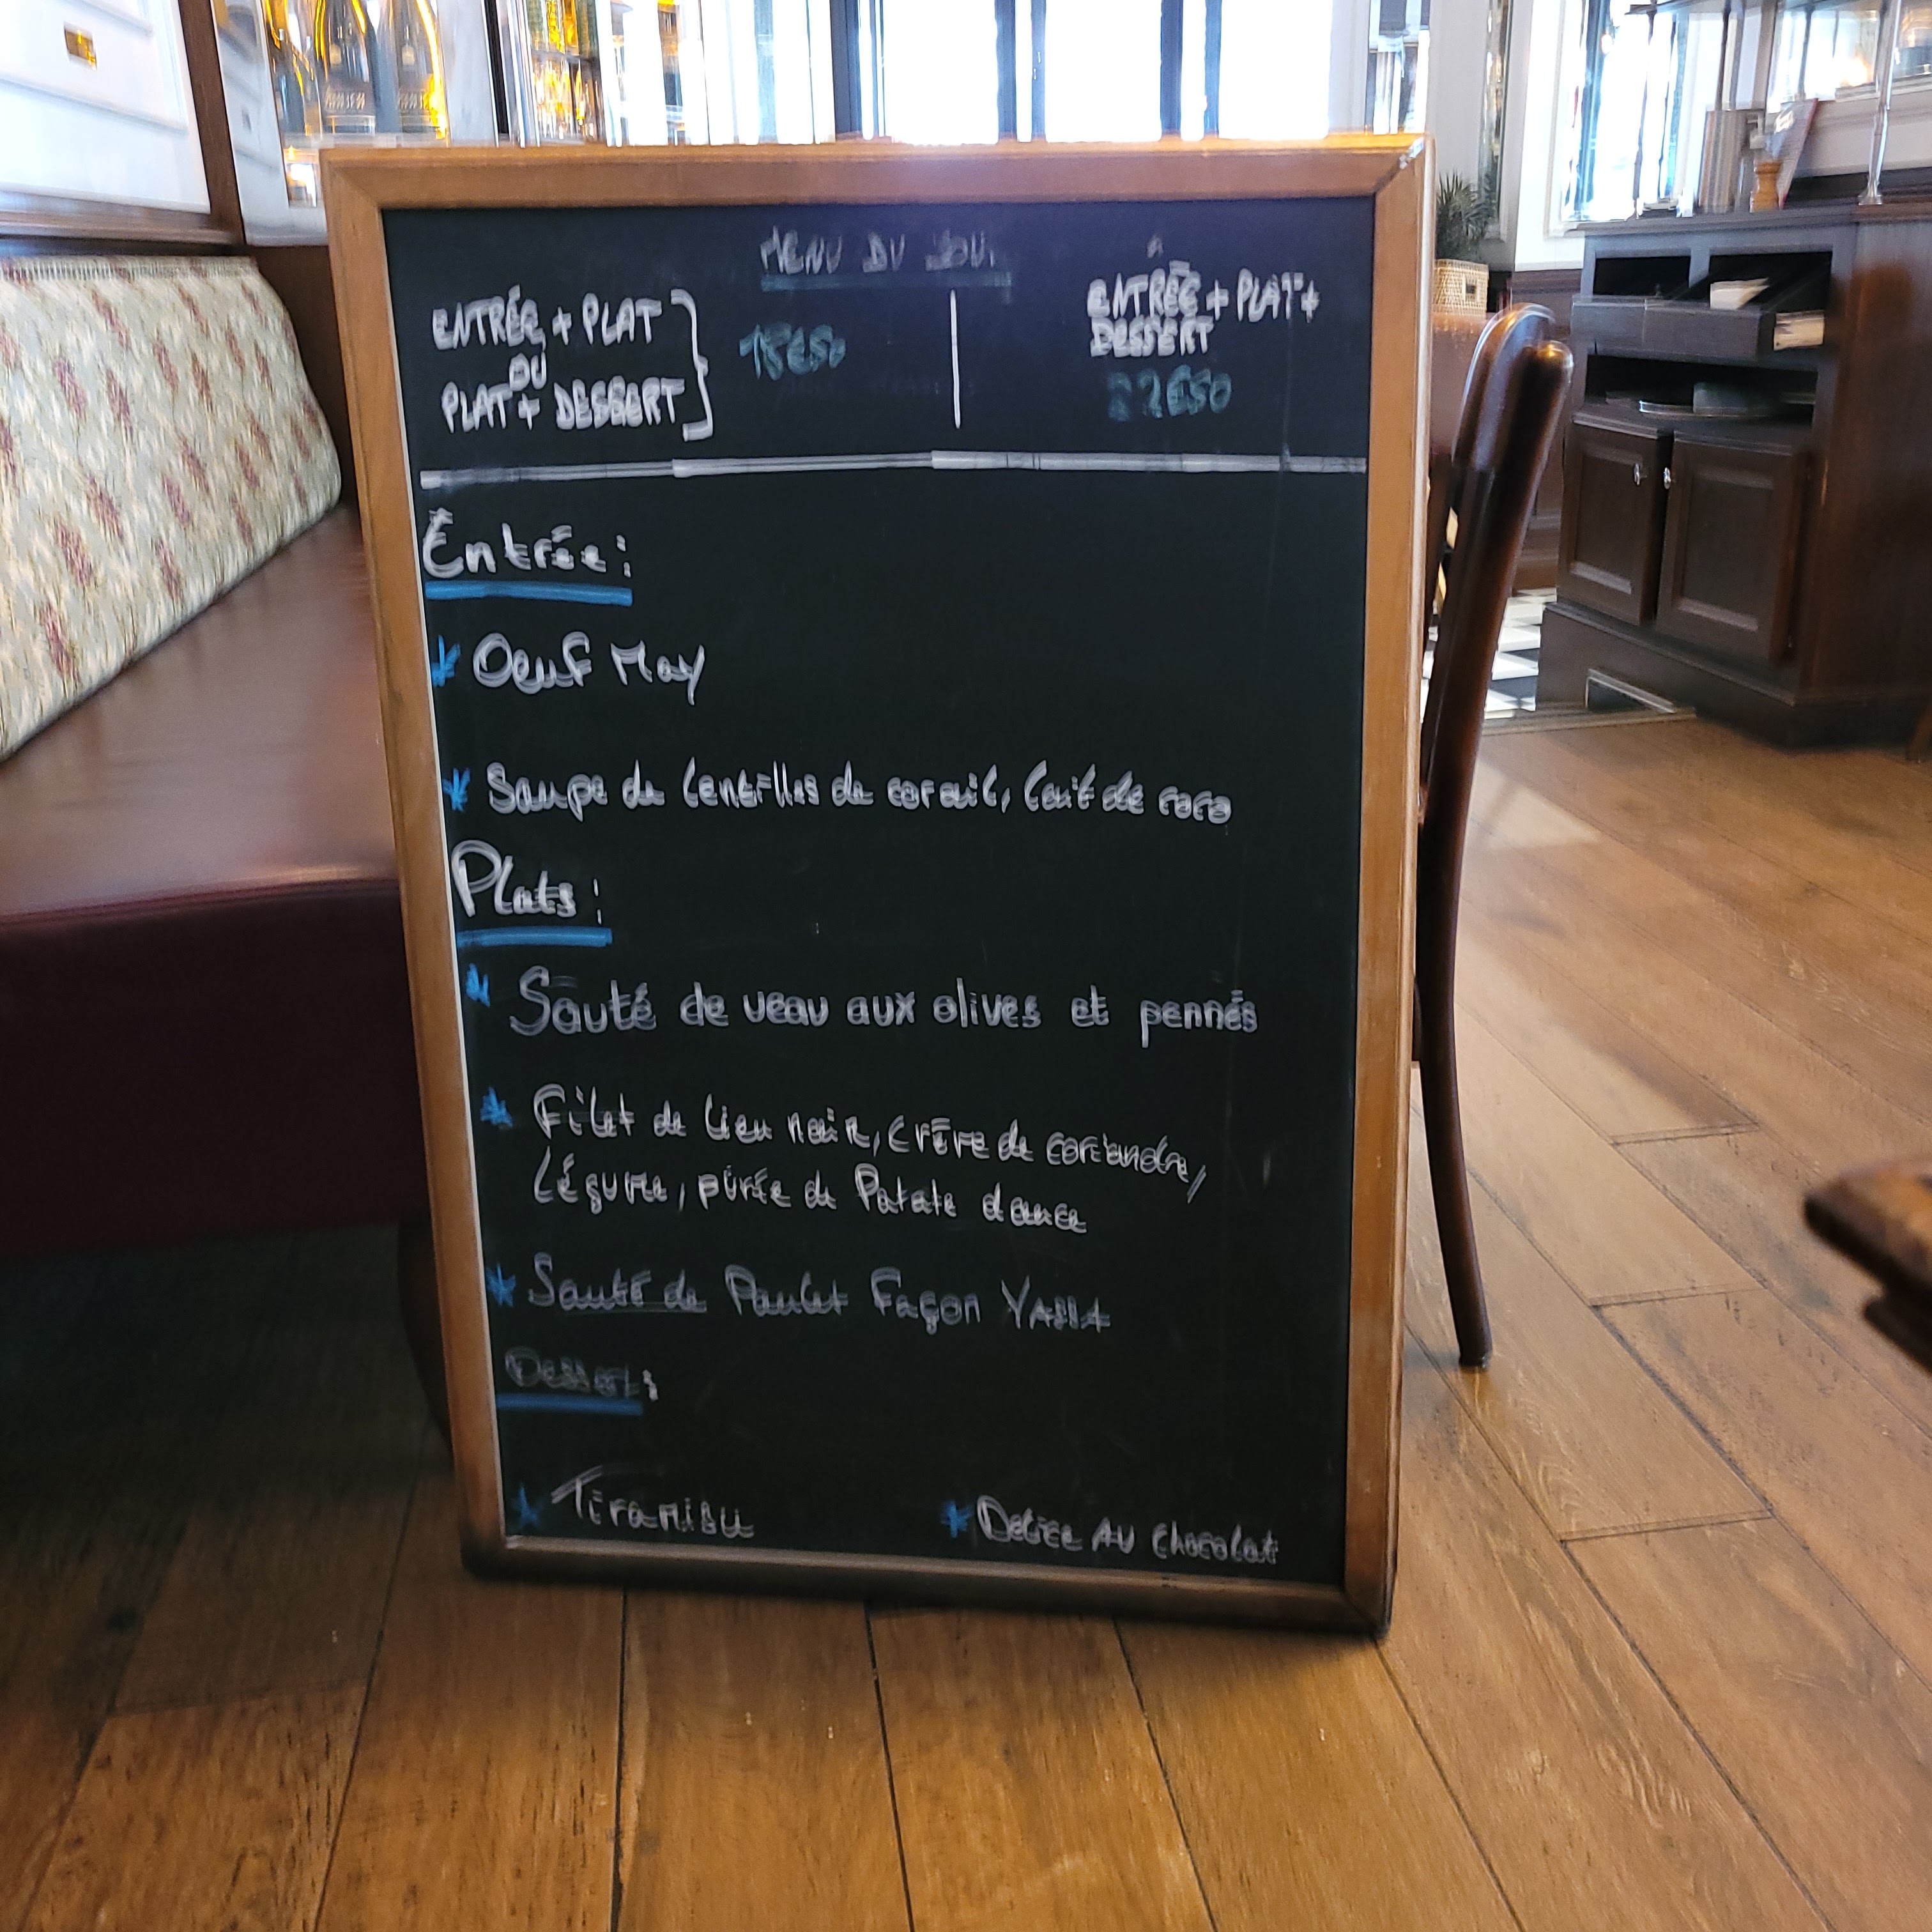 MENU DU JOUR
ENTRÉE + PLAT
OU
PLAT + DESSERT
ENTRÉE + PLAT +
DESSERT
22€50
Entrée :
* Oeuf May
* Soupe de lentilles de corail, lait de coco
Plats :
* Sauté de veau aux olives et pennés
* Filet de lieu noir, crème de coriandre,
Légume, purée de Patate douce
* Sauté de Poulet Façon YASSA
Dessert :
* Tiramisu
* Delice AU Chocolat